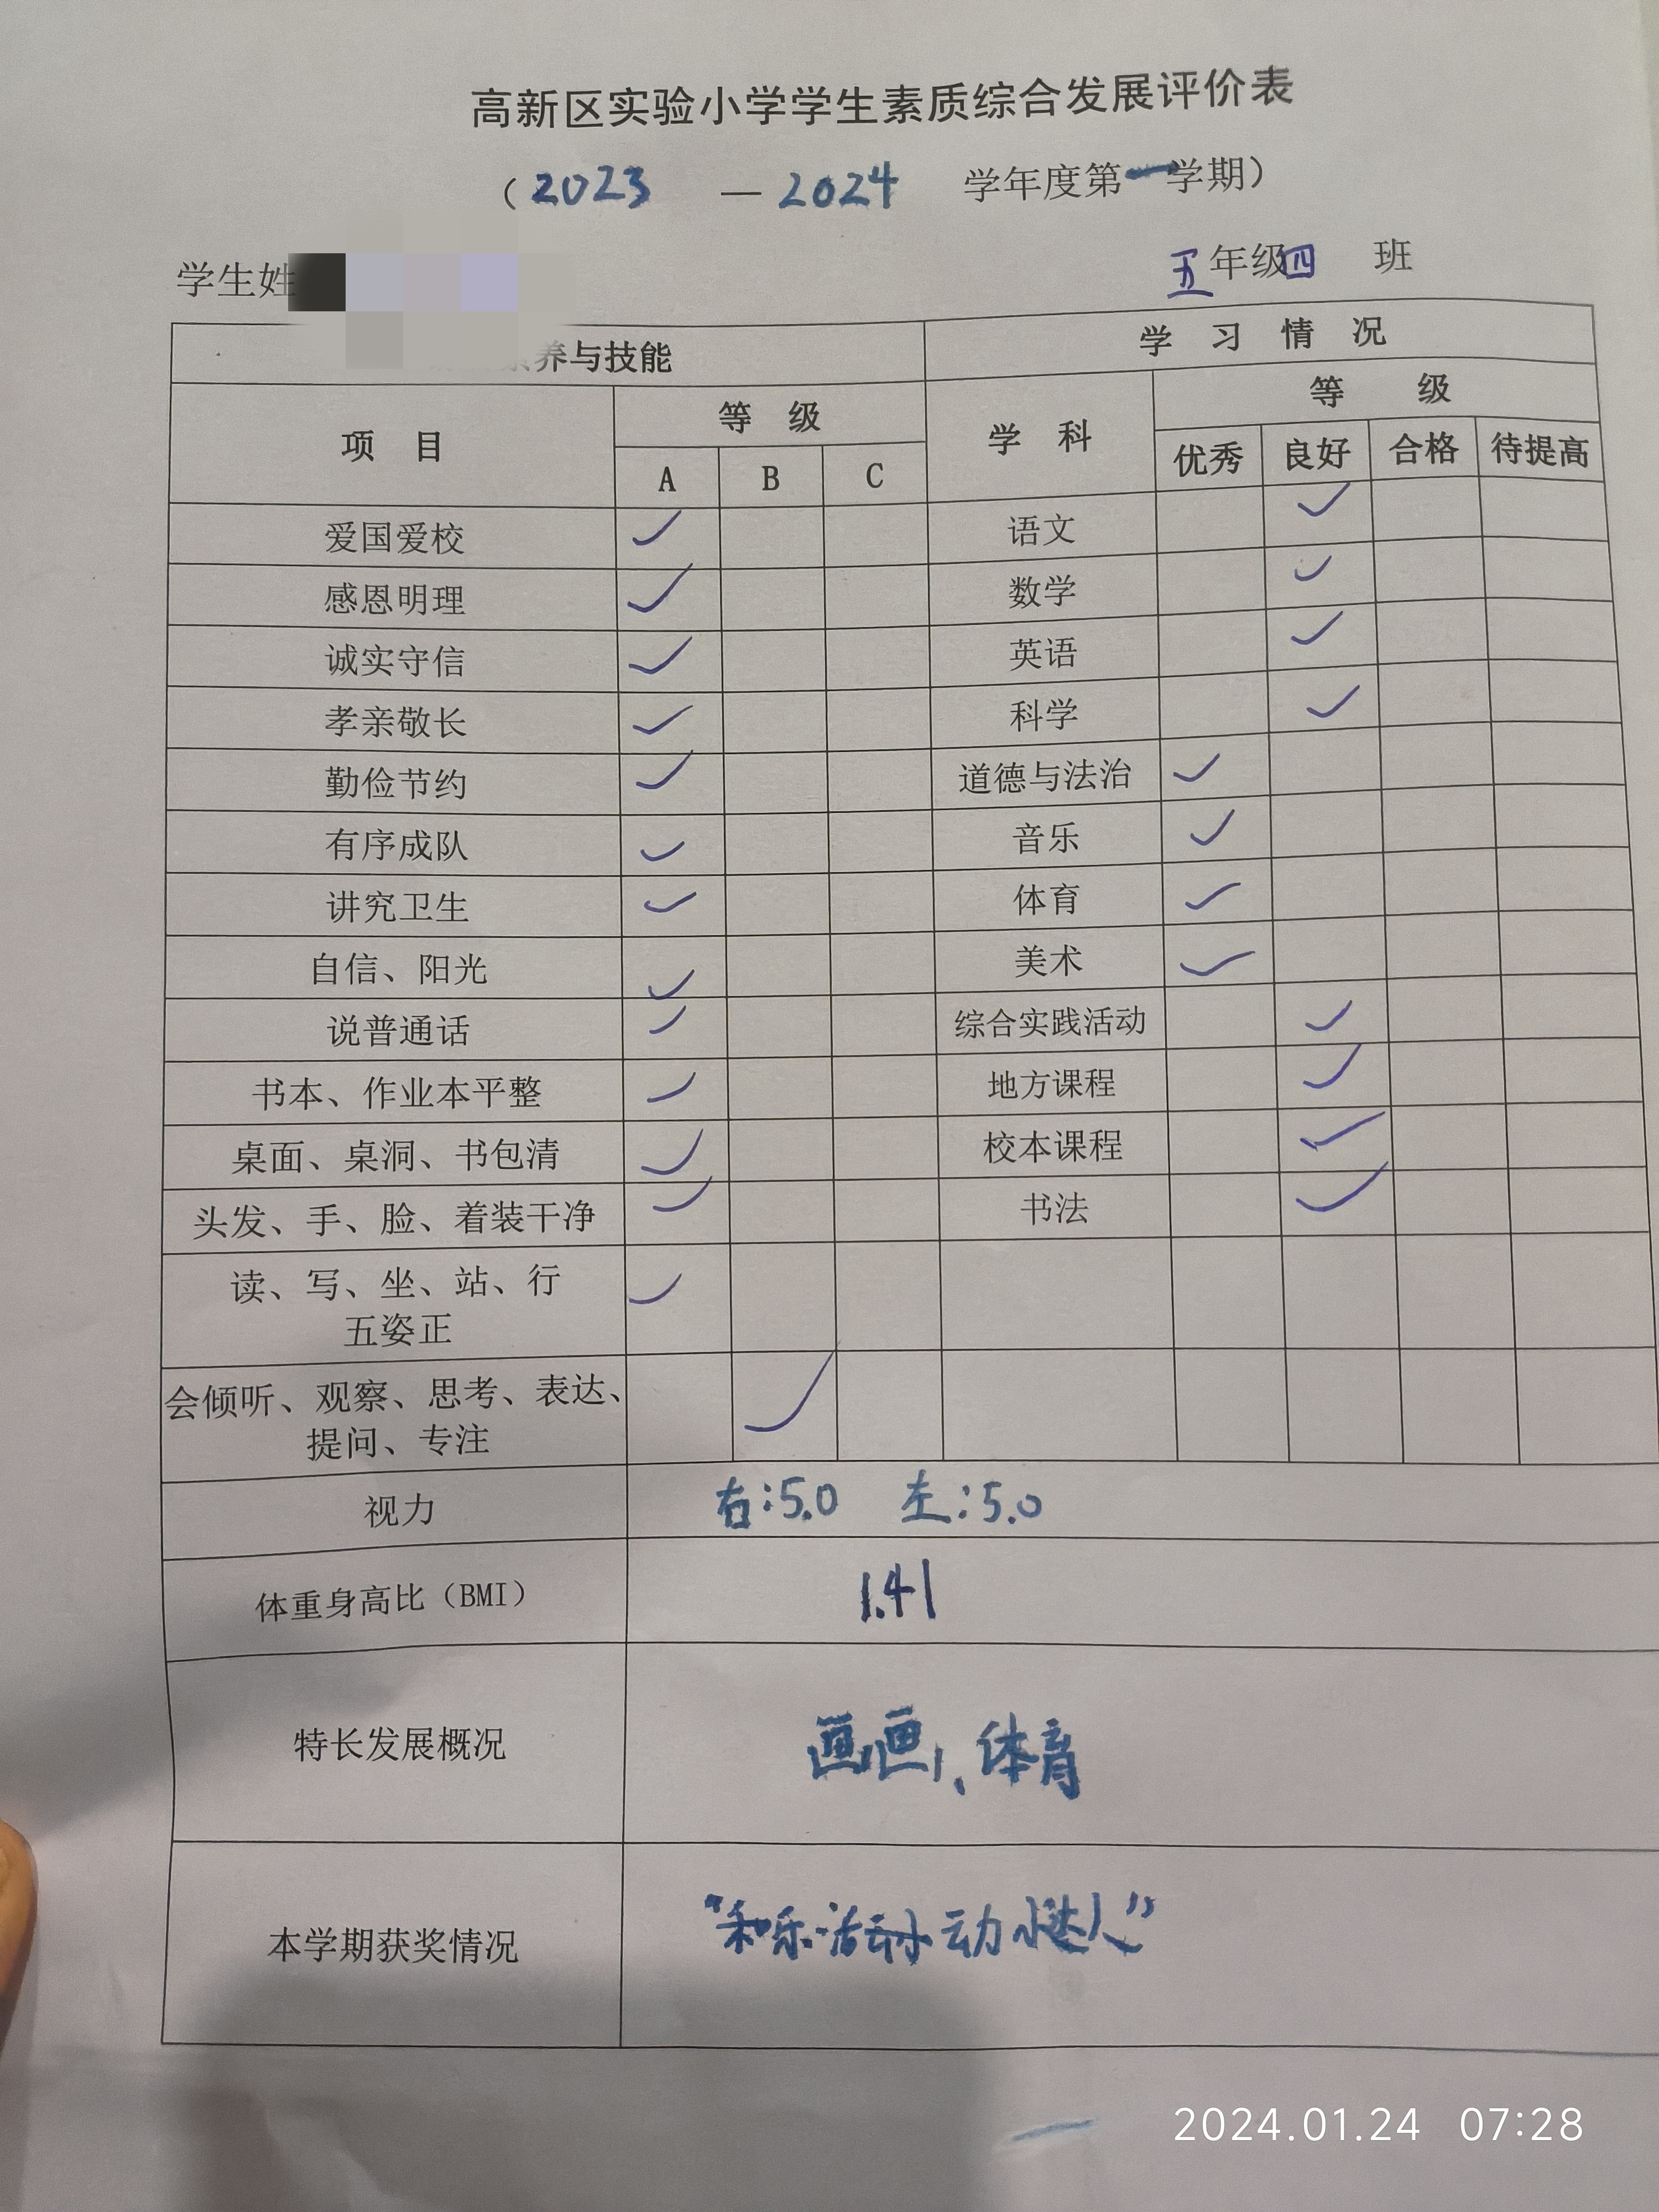 高新区实验小学学生素质综合发展评价表
（2023 — 2024 学年度第一学期）
学生姓
五年级四 班
养与技能 学 习 情 况
项 目 等 级 学 科 等 级
A B C 优秀 良好 合格 待提高
爱国爱校 ✓ 语文 ✓
感恩明理 ✓ 数学 ✓
诚实守信 ✓ 英语 ✓
孝亲敬长 ✓ 科学 ✓
勤俭节约 ✓ 道德与法治 ✓
有序成队 ✓ 音乐 ✓
讲究卫生 ✓ 体育 ✓
自信、阳光 ✓ 美术 ✓
说普通话 ✓ 综合实践活动 ✓
书本、作业本平整 ✓ 地方课程 ✓
桌面、桌洞、书包清 ✓ 校本课程 ✓
头发、手、脸、着装干净 ✓ 书法 ✓
读、写、坐、站、行 ✓
五姿正
会倾听、观察、思考、表达、 ✓
提问、专注
视力 右:5.0 左:5.0
体重身高比（BMI） 1.41
特长发展概况 画画、体育
本学期获奖情况 “和乐·活动小达人”
2024.01.24 07:28